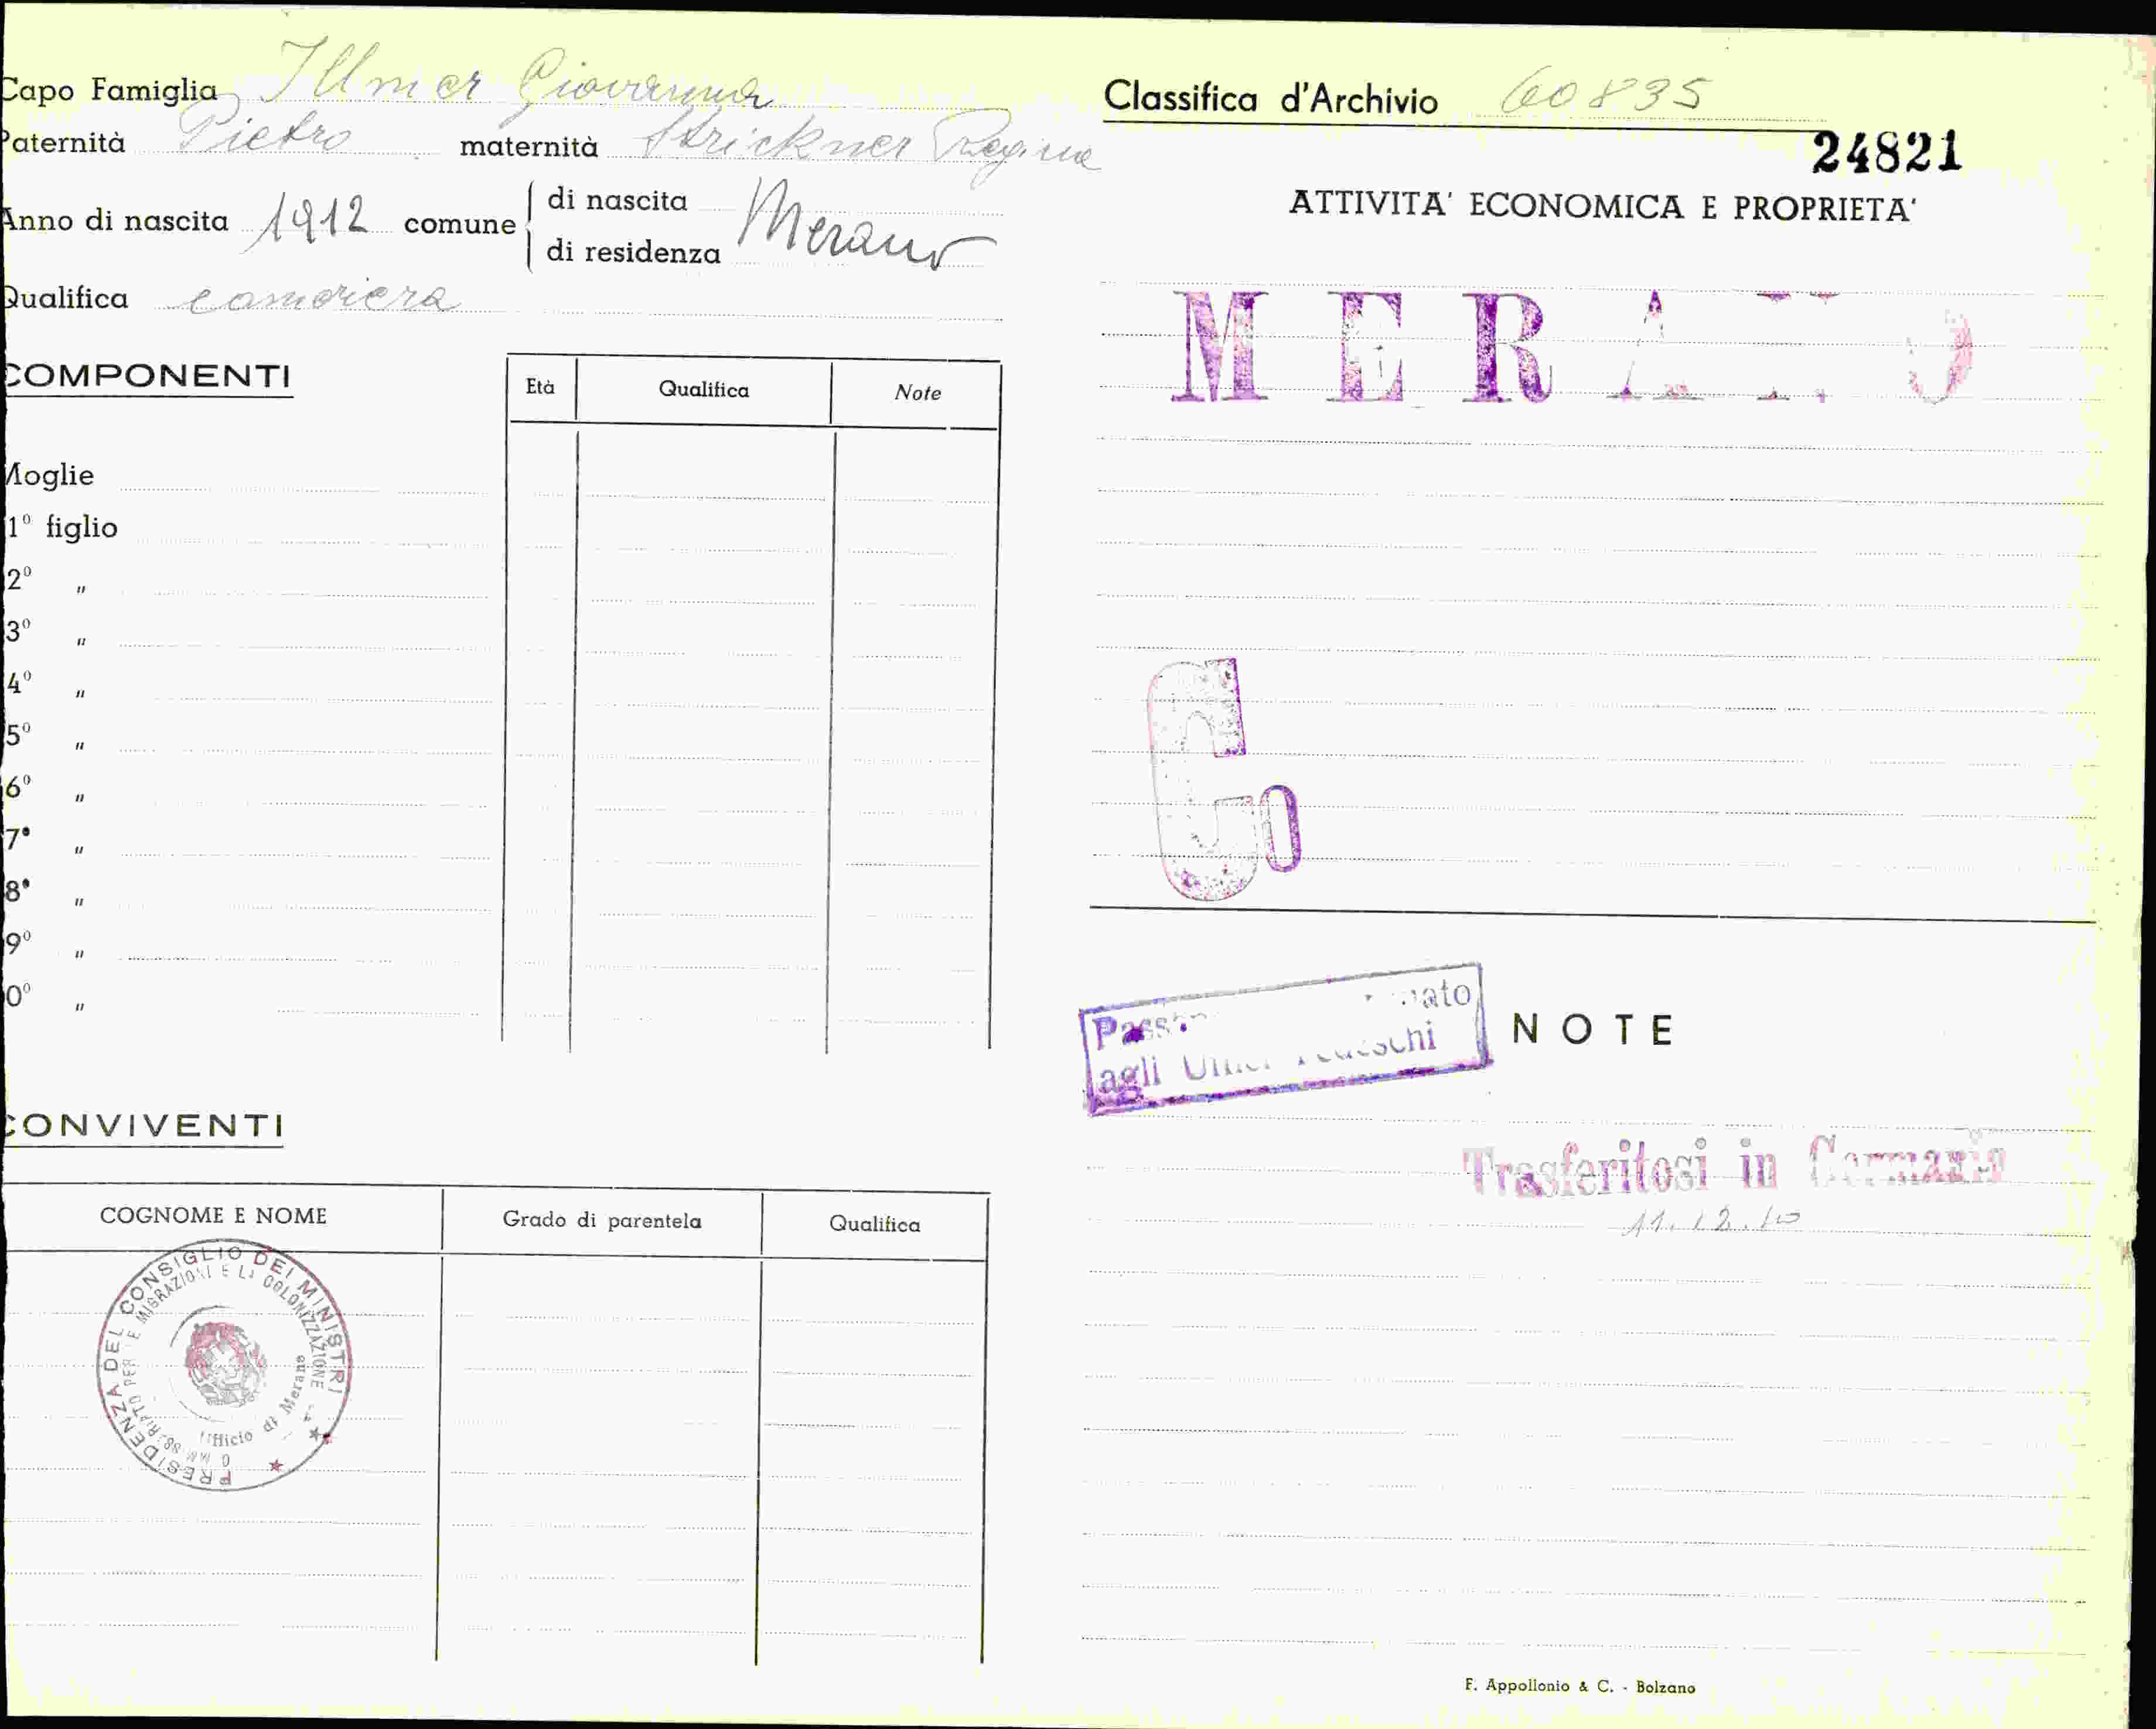 Capo Famiglia Illmer Giovanna
Paternità Pietro maternità Strickner Regina
Anno di nascita 1912 comune di nascita Merano
di residenza
Qualifica cameriera
COMPONENTI
Età Qualifica Note
Moglie
1º figlio
2º "
3º "
4º "
5º "
6º "
7º "
8º "
9º "
0º "
CONVIVENTI
COGNOME E NOME Grado di parentela Qualifica
PRESIDENZA DEL CONSIGLIO DEI MINISTRI
MIGRAZIONI E LA COLONIZZAZIONE
Ufficio di Merano
Classifica d'Archivio 60835
24821
ATTIVITA' ECONOMICA E PROPRIETA'
MERANO
G0
agli Uffici Tedeschi
NOTE
Trasferitosi in Germania
11.12.40
F. Appollonio & C. - Bolzano